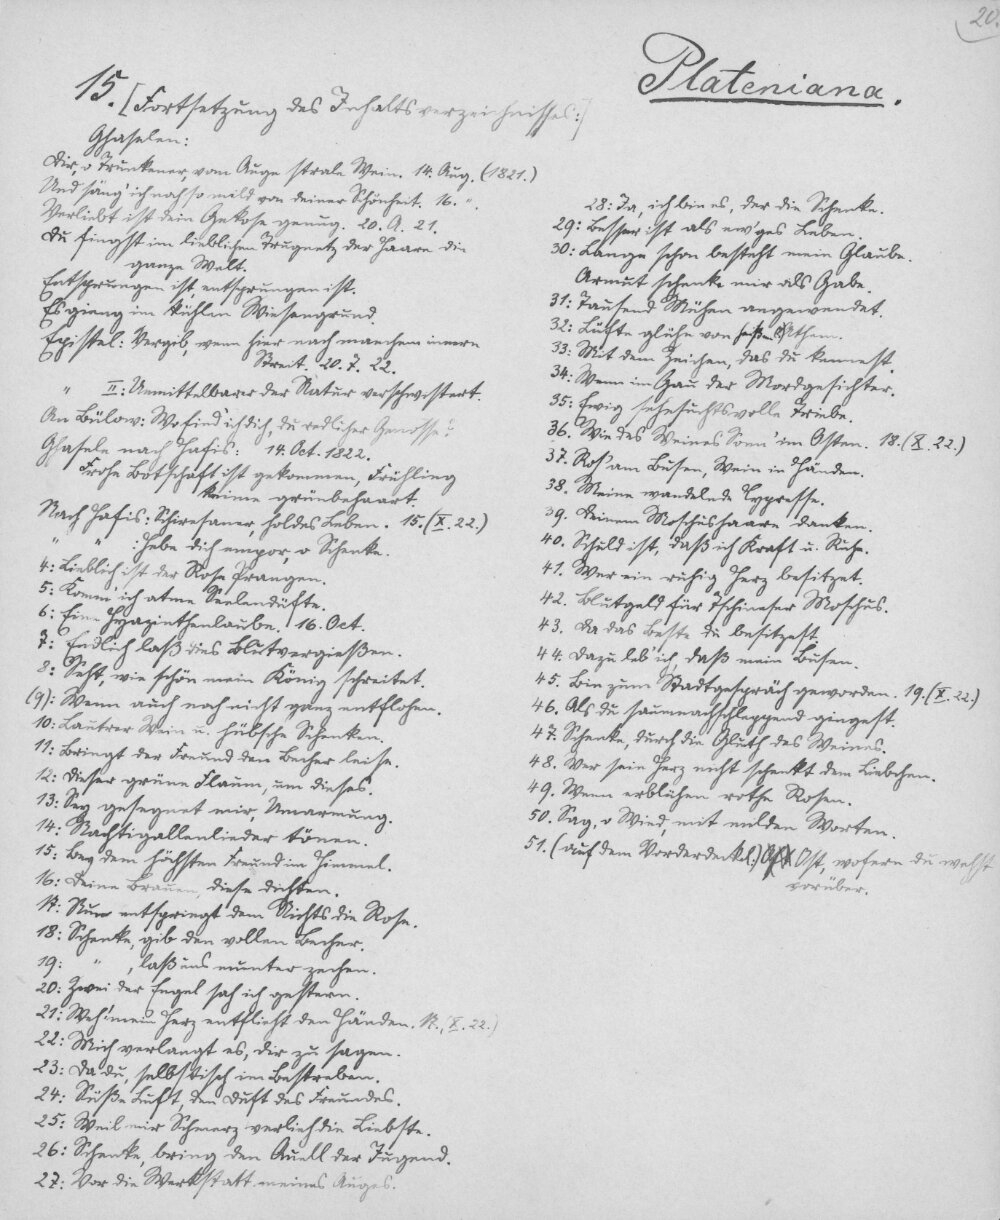 20.
Plateniana.
15. [Fortsetzung des Inhaltsverzeichnisses:]
Ghaselen:
Dir, o Trunkener, vom Auge strale Wein. 14. Aug. (1821.)
Und säng' ich noch so mild von deiner Schönheit. 16. ".
Verliebt ist dein Gekose genug. 20. A. 21.
Du fingst im lieblichen Trugnetz der Haare die
ganze Welt.
Entsprungen ist, entsprungen ist.
Es gieng im kühlen Wiesengrund.
Epistel: Vergib, wenn hier nach manchem innern
Streit. 20. 7. 22.
" II: Unmittelbarer der Natur verschwistert.
An Bülow: Wo find' ich dich, du redlicher Genosse?
Ghasele nach Hafis: 14. Oct. 1822.
Frohe Botschaft ist gekommen, Frühling
keime grünbehaart.
Nach Hafis: Schiresaner, holdes Leben. 15. (X. 22.)
" " : Hebe dich empor, o Schenke.
4: Lieblich ist der Rose Prangen.
5: Komm' ich atme Seelendüfte.
6: Eine Hyazinthenlaube. 16. Oct.
7: Endlich laß dies Blutvergießen.
8: Seht, wie schön mein König schreitet.
(9): Wenn auch noch nicht ganz entflohen.
10: Lautrer Wein u. hübsche Schenken.
11: Bringt der Freund den Becher leise.
12: Dieser grüne Flaum, um dieses.
13: Sey gesegnet mir, Umarmung.
14: Nachtigallenlieder tönen.
15: Bey dem höchsten Freund im Himmel.
16: Deine Brauen, diese dichten.
17: Nun entspringt dem Nichts die Rose.
18: Schenke, gib den vollen Becher.
19: " , laß uns munter zechen.
20: Zwei der Engel sah ich gestern.
21: Weh! mein Herz entflieht den Händen. 17. (X. 22.)
22: Mich verlangt es, dir zu sagen.
23: Da du, selbstisch im Bestreben.
24: Süße Luft, den Duft des Freundes.
25: Weil mir Schmerz verlieh die Liebste.
26: Schenke, bring den Quell der Jugend.
27: Vor die Werkstatt meines Auges.
28: Ja, ich bin es, der die Schenke.
29: Besser ist als ew'ges Leben.
30: Lange schon besteht mein Glaube.
Armut schenke mir als Gabe.
31: Tausend Mühen angewendet.
32: Lüfte glühe von heißem Athem.
33: Mit dem Zeichen, das du kennest.
34: Wenn im Gau der Mordgesichter.
35: Ewig sehnsuchtsvolle Triebe.
36. Wie des Weines Sonn' im Osten. 18. (X. 22.)
37. Ros' am Busen, Wein in Händen.
38. Meine wandelnde Cypresse.
39. Deinem Moschushaare danken.
40. Schuld ist, daß ich Kraft u. Ruhe.
41. Wer ein ruhig Herz besitzet.
42. Blutgeld für Tschineser Moschus.
43. Da das Beste du besitzest.
44. Dazu leb' ich, daß mein Busen.
45. Bin zum Stadtgespräch geworden. 19. (X. 22.)
46. Als du saumnachschleppend giengest.
47. Schenke, durch die Gluth des Weines.
48. Wer sein Herz nicht schenkt dem Liebchen.
49. Wenn erblühen rothe Rosen.
50. Sag, o Wind, mit milden Worten.
51. (auf dem Vorderdeckel:) Ost, wofern du wehst
vorüber.